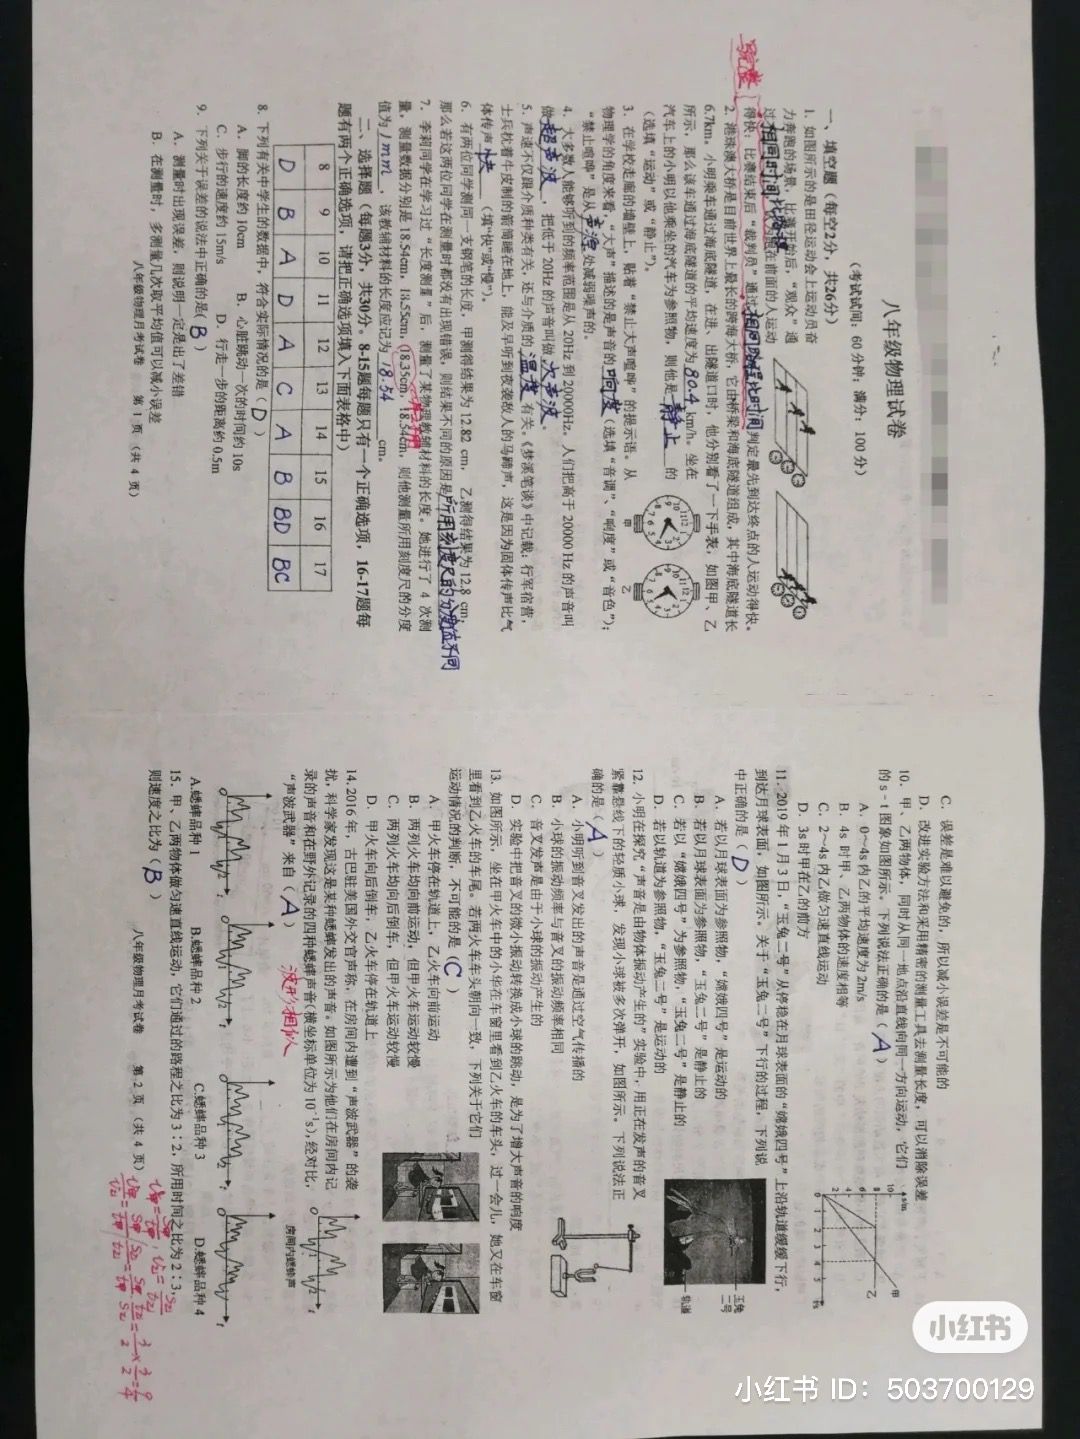 八年级物理试卷
(考试时间：60分钟；满分：100分)
一、填空题（每空2分，共26分）
1. 如图所示的是田径运动会上运动员奋
力奔跑的场景，比赛开始后，“观众”通
过相同时间比路程认为跑在前面的人运动
得快；比赛结束后“裁判员”通过相同路程比时间判定最先到达终点的人运动得快。
2. 港珠澳大桥是目前世界上最长的跨海大桥，它由桥梁和海底隧道组成，其中海底隧道长
6.7km。小明乘车通过海底隧道，在进、出隧道口时，他分别看了一下手表，如图甲、乙
所示，那么该车通过海底隧道的平均速度为80.4km/h。坐在
汽车上的小明以他乘坐的汽车为参照物，则他是静止的
（选填“运动”或“静止”）。
甲
乙
3. 在学校走廊的墙壁上，贴着“禁止大声喧哗”的提示语。从
物理学的角度来看，“大声”描述的是声音的响度（选填“音调”、“响度”或“音色”）；
“禁止喧哗”是从声源处减弱噪声的。
4. 大多数人能够听到的频率范围是从20Hz到20000Hz。人们把高于20000Hz的声音叫
做超声波，把低于20Hz的声音叫做次声波。
5. 声速不仅跟介质种类有关，还与介质的温度有关。《梦溪笔谈》中记载：行军宿营，
士兵枕着牛皮制的箭筒睡在地上，能及早听到夜袭敌人的马蹄声，这是因为固体传声比气
体传声快（填“快”或“慢”）。
6. 有两位同学测同一支钢笔的长度，甲测得结果为12.82 cm，乙测得结果为12.8 cm，
那么若这两位同学在测量时都没有出现错误，则结果不同的原因是所用刻度尺的分度值不同
7. 李莉同学在学习过“长度测量”后，测量了某物理教辅材料的长度。她进行了4次测
量，测量数据分别是18.54cm，18.55cm，18.35cm，18.54cm，则他测量所用刻度尺的分度
值为1mm，该教辅材料的长度应记为18.54cm。
二、选择题（每题3分，共30分。8-15题每题只有一个正确选项，16-17题每
题有两个正确选项，请把正确选项填入下面表格中）
8 9 10 11 12 13 14 15 16 17
D B A D A C A B BD BC
8. 下列有关中学生的数据中，符合实际情况的是（D）
A. 脚的长度约10cm B. 心脏跳动一次的时间约10s
C. 步行的速度约15m/s D. 行走一步的距离约0.5m
9. 下列关于误差的说法中正确的是（B）
A. 测量时出现误差，则说明一定是出了差错
B. 在测量时，多测量几次取平均值可以减小误差
八年级物理月考试卷 第1页（共4页）
C. 误差是难以避免的，所以减小误差是不可能的
D. 改进实验方法和采用精密的测量工具去测量长度，可以消除误差
10. 甲、乙两物体，同时从同一地点沿直线向同一方向运动，它们
的s－t图象如图所示。下列说法正确的是（A）
A. 0～4s内乙的平均速度为2m/s
B. 4s时甲、乙两物体的速度相等
C. 2～4s内乙做匀速直线运动
D. 3s时甲在乙的前方
11. 2019年1月3日，“玉兔二号”从停稳在月球表面的“嫦娥四号”上沿轨道缓缓下行，
到达月球表面，如图所示。关于“玉兔二号”下行的过程，下列说
中正确的是（D）
A. 若以月球表面为参照物，“嫦娥四号”是运动的
B. 若以月球表面为参照物，“玉兔二号”是静止的
C. 若以“嫦娥四号”为参照物，“玉兔二号”是静止的
D. 若以轨道为参照物，“玉兔二号”是运动的
玉兔
二号
轨道
12. 小明在探究“声音是由物体振动产生的”实验中，用正在发声的音叉
紧靠悬线下的轻质小球，发现小球被多次弹开，如图所示。下列说法正
确的是（A）
A. 小明听到音叉发出的声音是通过空气传播的
B. 小球的振动频率与音叉的振动频率相同
C. 音叉发声是由于小球的振动产生的
D. 实验中把音叉的微小振动转换成小球的跳动，是为了增大声音的响度
13. 如图所示，坐在甲火车中的小华在车窗里看到乙火车的车头，过一会儿，她又在车窗
里看到乙火车的车尾。若两火车车头朝向一致，下列关于它们
运动情况的判断，不可能的是（C）
A. 甲火车停在轨道上，乙火车向前运动
B. 两列火车均向前运动，但甲火车运动较慢
C. 两列火车均向后倒车，但甲火车运动较慢
D. 甲火车向后倒车，乙火车停在轨道上
14. 2016年，古巴驻美国外交官声称，在房间内遭到“声波武器”的袭
扰，科学家发现这是某种蟋蟀发出的声音。如图所示为他们在房间内记
录的声音和在野外记录的四种蟋蟀声音（横坐标单位为10⁻¹s），经对比，
“声波武器”来自（A）波形相似
房间内蟋蟀声
A.蟋蟀品种1 B.蟋蟀品种2 C.蟋蟀品种3 D.蟋蟀品种4
15. 甲、乙两物体做匀速直线运动，它们通过的路程之比为3∶2，所用时间之比为2∶3，
则速度之比为（B）
八年级物理月考试卷 第2页（共4页）
小红书
小红书 ID：503700129